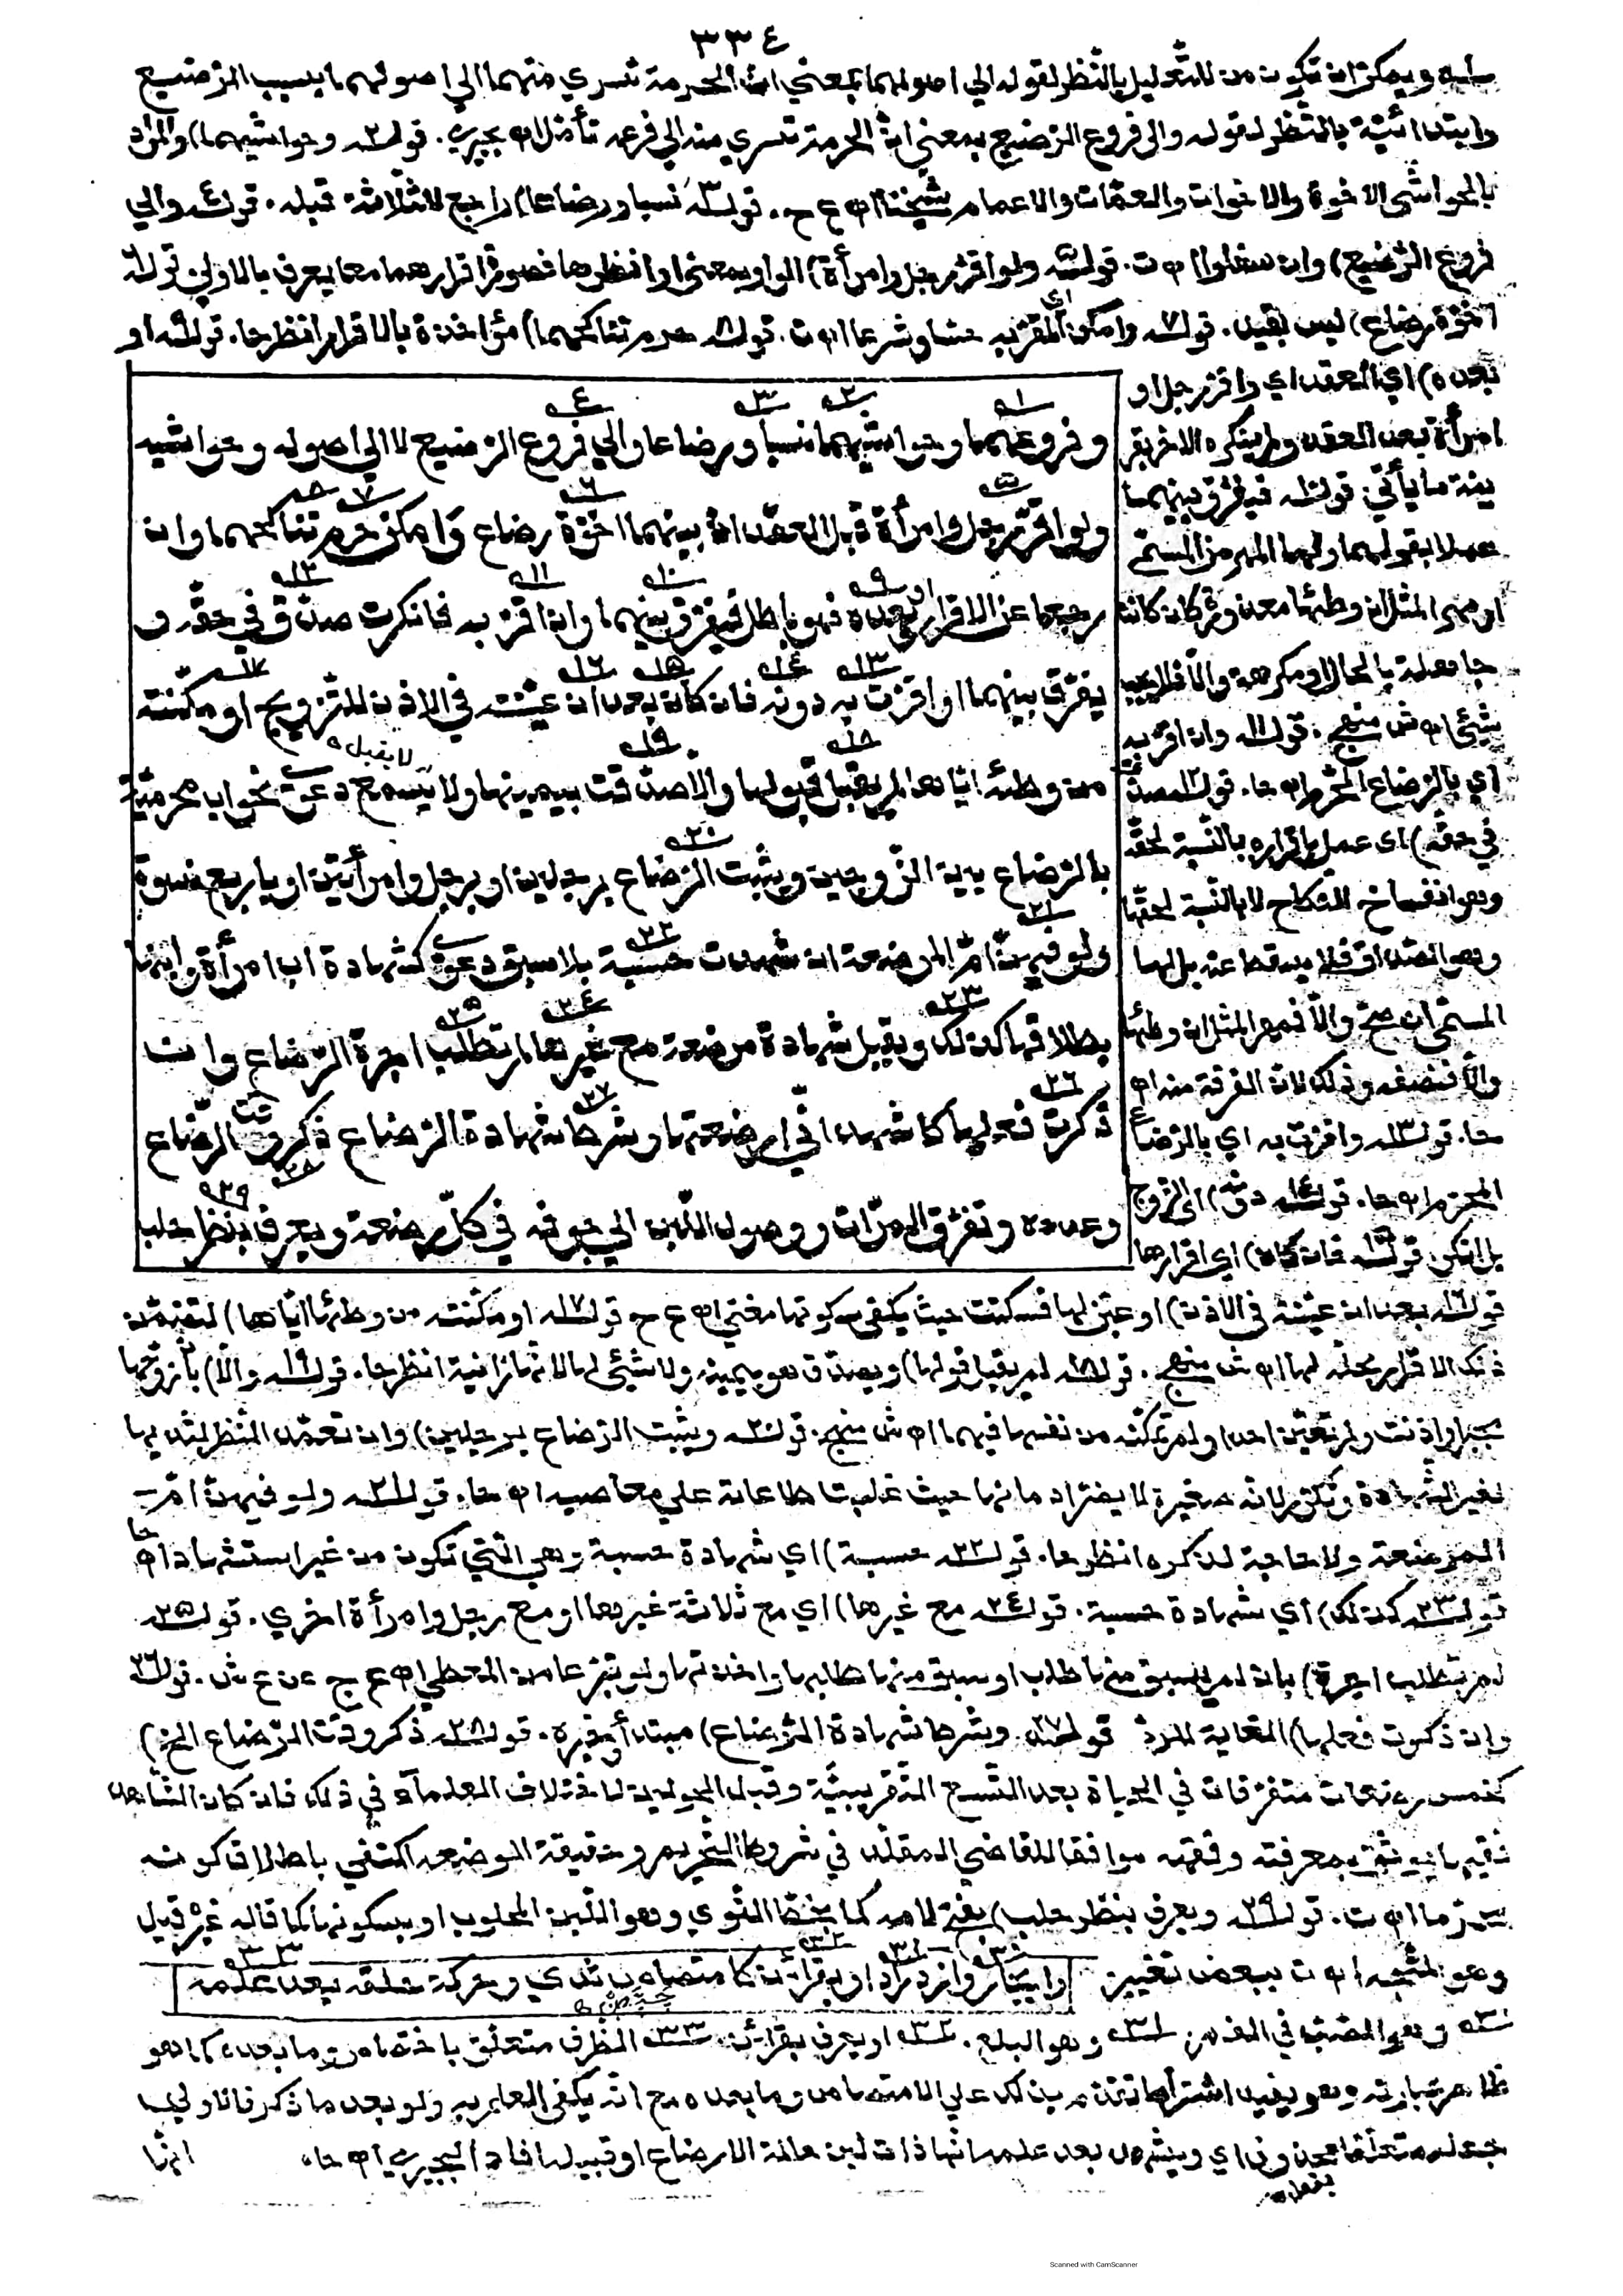 ٣٣٤
ويمكن ان تكون من للتعليل بالنظر لقوله الى اصولهما بمعنى ان الحرمة تسري منهما الى اصولهما بسبب الرضيع
وابتدائية بالنظر لقوله والى فروع الرضيع بمعنى ان الحرمة تسري منه الى فرعه تأمل اه بجيرمي. قوله٢ وحواشيهما) والمراد
بالحواشي الاخوة والاخوات والعمات والاعمام شيخنا اه ع ح. قوله٣ نسبا ورضاعا) راجع للثلاثة قبله. قوله٤ والي
فروع الرضيع) وان سفلوا اه ت. قوله٥ ولو اقر رجل وامرأة) الواو بمعنى او انظرها فصورة اقرارهما معا يعرف بالاولى قوله٦
اخوة رضاع) ليس بقيد. قوله٧ وامكن) اي المقر به حسا وشرعا اه ت. قوله٨ حرم تناكحهما) مؤاخذة بالاقرار انظر حا. قوله٩ او
بعده) اي العقد اي واقر رجل او
امرأة بعد العقد ولم ينكره الاخر بقر
ينة ما يأتي. قوله١٠ فيفرق بينهما
عملا بقولهما ولها المهر من المسمى
او مهر المثل ان وطئها معذورة كان كانت
جاهلة بالحال او مكرهة والا فلا يجب
شيئ اه ش منهج. قوله١١ وان اقر به
اي بالرضاع المحرم اه حا. قوله١٢ صدق
في حقه) اى عمل باقراره بالنسبة لحقه
وهو انفساخ النكاح لا بالنسبة لحقها
وهو الصداق فلا يسقط عنه بل لها
المسمى ان صح والا فمهر المثل ان وطئها
والا فنصفه وذلك لان الفرقة منه اه
حا. قوله١٣ واقرت به اي بالرضاع
المحرم اه حا. قوله١٤ دونه) اى الزوج
بل انكر. قوله١٥ فان كان) اي اقرارها
وفروعهما وحواشيهما نسبا ورضاعا والي فروع الرضيع لا الى اصوله وحواشيه
ولو اقر رجل وامرأة قبل العقد ان بينهما اخوة رضاع وامكن حرم تناكحهما وان
رجعا عن الاقرار او بعده فهو باطل فيفرق بينهما وان اقر به فانكرت صدق في حقه و
يفرق بينهما او اقرت به دونه فان كان بعد ان عينته في الاذن للتزويج او مكنته
من وطئه اياها لم يقبل قولها والا صدقت بيمينها ولا يسمع دعوى نحو اب محرمية
بالرضاع بين الزوجين ويثبت الرضاع برجلين او برجل وامرأتين او باربع نسوة
ولو فيهن ام المرضعة ان شهدت حسبة بلا سبق دعوى كشهادة اب امرأة وابنها
بطلاقها كذلك ويقبل شهادة مرضعة مع غيرها لم تطلب اجرة الرضاع وان
ذكرت فعلها كاشهد اني ارضعتها وشرط شهادة الرضاع ذكر وقت الرضاع
وعدده وتفرق المرات ووصول اللبن الى جوفه في كل رضعة ويعرف بنظر حلب
قوله١٦ بعد ان عينته في الاذن) او عين لها فسكتت حيث يكفي سكوتها مغني اه ع ح قوله١٧ او مكنته من وطئه اياها) لتضمن
ذلك الاقرار بحله لها اه ش منهج. قوله١٨ لم يقبل قولها) ويصدق هو بيمينه ولا شيئ لها لانها زانية انظر حا. قوله١٩ والا) بان زوجها
مجبر او اذنت ولم تعين احدا ولم تمكنه من نفسها فيهما اه ش منهج. قوله٢٠ ويثبت الرضاع برجلين) وان تعمد النظر لثديها
لغير الشهادة وتكرر لانه صغيرة لا يضر ادمانها حيث غلبت طاعاته على معاصيه اه حا. قوله٢١ ولو فيهن ام
المرضعة ولا حاجة لذكره انظر حا. قوله٢٢ حسبة) اي شهادة حسبة وهي التي تكون من غير استشهاد اه حا
قوله٢٣ كذلك) اي شهادة حسبة. قوله٢٤ مع غيرها) اي مع ثلاثة غيرها او مع رجل وامرأة اخرى. قوله٢٥
لم تطلب اجرة) بان لم يسبق منها طلب او سبق منها طلبها واخذتها ولو تبرعا من المعطي اه ع ج عن ع ش. قوله٢٦
وان ذكرت فعلها) الغاية للرد قوله٢٧ وشرط شهادة الرضاع) مبتدأ وخبره. قوله٢٨ ذكر وقت الرضاع الخ)
كخمس رضعات متفرقات في الحياة بعد التسع التقريبية وقبل الحولين لاختلاف العلماء في ذلك فان كان الشاهد
فقيها يوثق بمعرفته وفقهه موافقا للقاضي المقلد في شروط التحريم وحقيقة الرضعة اكتفي باطلاق كونه
محرما اه ت. قوله٢٩ ويعرف بنظر حلب) بفتح لامه كما بخط النووي وهو اللبن المحلوب او بسكونها كما قاله غيره قيل
وهو المتجه اه ت ببعض تغيير
وايجار وازدراد او بقرائن كامتصاص ثدي وحركة حلقه بعد علمه
٣٠ وهو الصب في الفم ٣١ وهو البلع. ٣٢ او يعرف بقرائن ٣٣ الظرف متعلق بامتصاص وما بعده كما هو
ظاهر عبارته وهو يفيد اشتراط تقدم ذلك على الامتصاص وما بعده مع انه يكفي العلم به ولو بعد ما ذكر فالاولى
جعله متعلقا بمحذوف اي ويشهد بعد علمه انها ذات لبن حالة الارضاع او قبيله افاد البجيرمي اه حا.
انها
Scanned with CamScanner